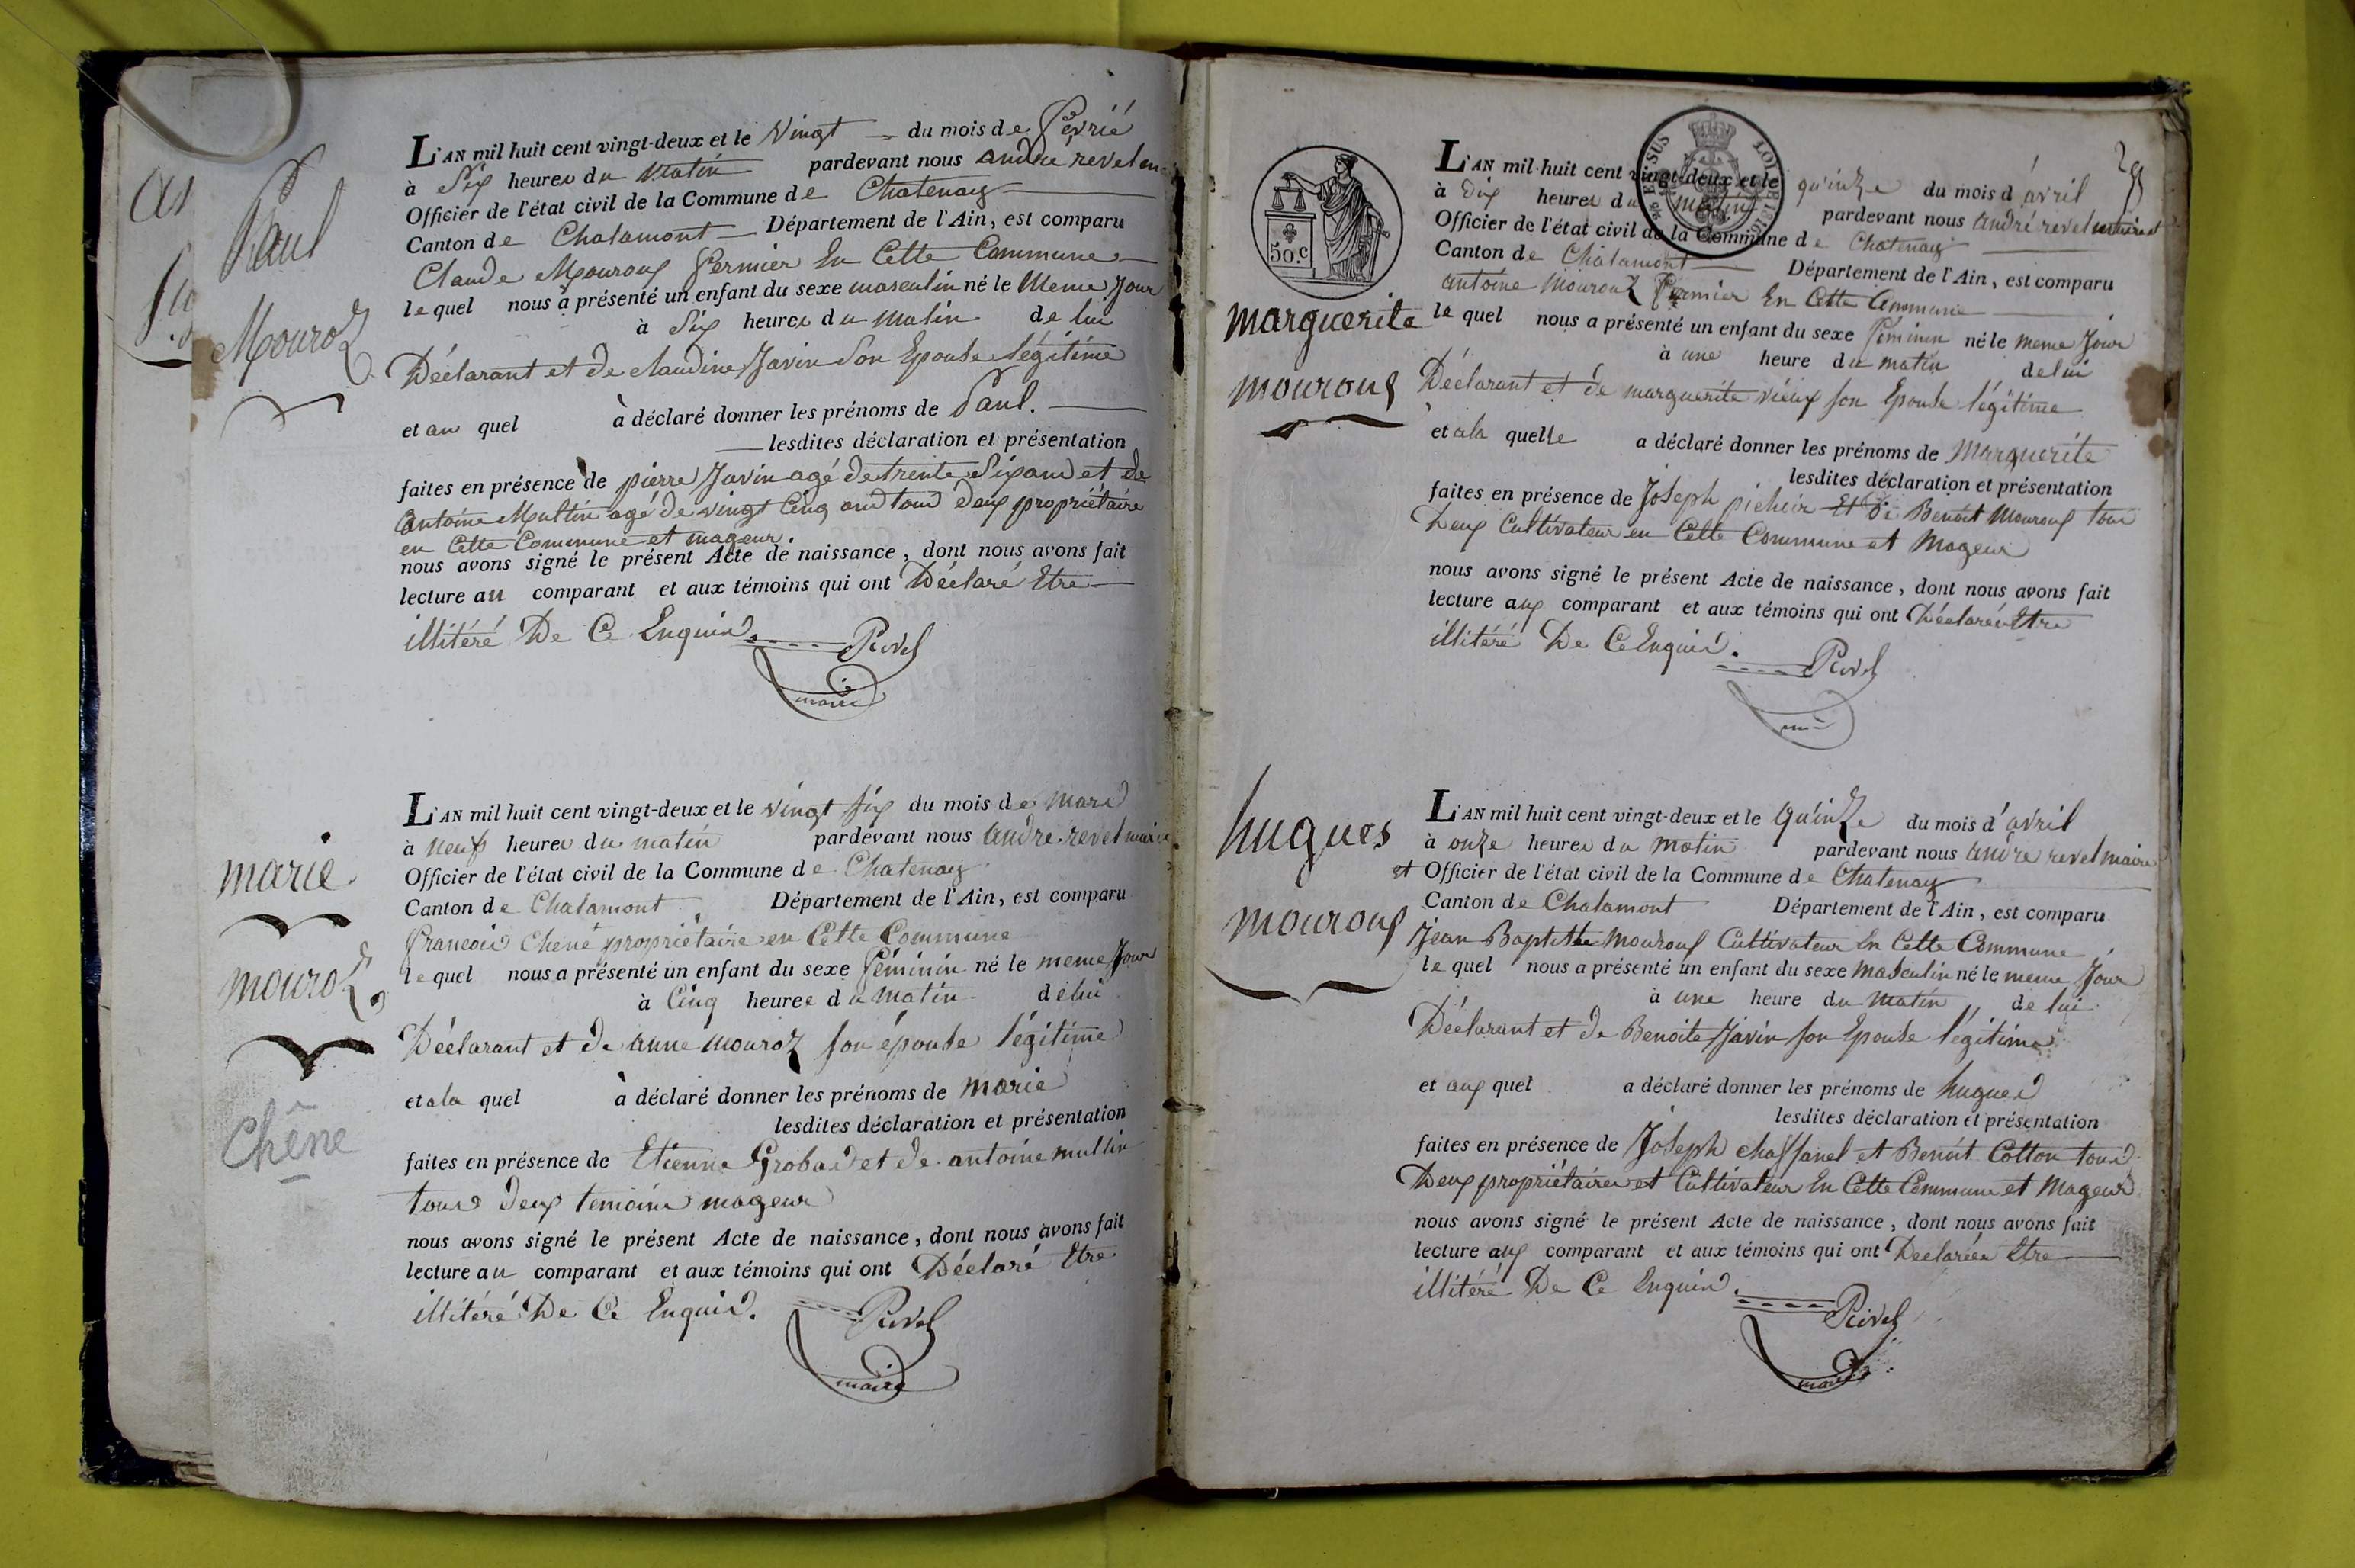 Paul
Mouroz
L'AN mil huit cent vingt-deux et le vingt du mois de fevrié
à Six heures du matin pardevant nous andré revel
Officier de l'état civil de la Commune de Chatenay
Canton de Chalamont Département de l'Ain, est comparu
Claude Mouroux fermier En Cette Commune
lequel nous à présenté un enfant du sexe masculin né le Meme Jour
à Six heures du matin de lui
Déclarant et de claudine Javin Son Epouse légitime
et au quel à déclaré donner les prénoms de Paul.
lesdites déclaration et présentation
faites en présence de pierre Javin agé de trente Six ans et de
antoine Multin agé de vingt Cinq ans tous deux propriétaire
en Cette Commune et mageur.
nous avons signé le présent Acte de naissance, dont nous avons fait
lecture au comparant et aux témoins qui ont Déclaré Etre
illitéré De Ce Enquis.
Revel
maire
marie
mouroz
Chêne
L'AN mil huit cent vingt-deux et le vingt six du mois de mars
à neuf heures du matin pardevant nous andré revel maire
Officier de l'état civil de la Commune de Chatenay
Canton de Chalamont Département de l'Ain, est comparu
francois Chene propriétaire en Cette Commune
lequel nous a présenté un enfant du sexe féminin né le meme Jour
à Cinq heures du matin de lui
Déclarant et de anne mouroz son épouse légitime
et a la quel à déclaré donner les prénoms de marie
lesdites déclaration et présentation
faites en présence de Etienne Grobas et de antoine multin
tous deux temoins mageur
nous avons signé le présent Acte de naissance, dont nous avons fait
lecture au comparant et aux témoins qui ont Déclaré Etre
illitéré De Ce Enquis.
Revel
maire
50.c
marguerite
mouroux
L'AN mil huit cent vingt-deux et le quinze du mois d'avril
à dix heures du matin pardevant nous andré revel maire et
Officier de l'état civil de la Commune de Chatenay
Canton de Chalamont Département de l'Ain, est comparu
antoine mouroux fermier En Cette Commune
lequel nous a présenté un enfant du sexe féminin né le meme Jour
à une heure du matin de lui
Déclarant et de marguerite vieux son Epouse légitime
et a la quelle a déclaré donner les prénoms de Marguerite
lesdites déclaration et présentation
faites en présence de Joseph Et de Benoit Mouroux tous
Deux Cultivateur en Cette Commune et Mageur
nous avons signé le présent Acte de naissance, dont nous avons fait
lecture aux comparant et aux témoins qui ont Déclarés Etre
illitéré De Ce Enquis.
Revel
hugues
mouroux
L'AN mil huit cent vingt-deux et le quinze du mois d'avril
à onze heures du matin pardevant nous andré revel maire
et Officier de l'état civil de la Commune de Chatenay
Canton de Chalamont Département de l'Ain, est comparu
Jean Baptiste mouroux Cultivateur En Cette Commune
lequel nous a présenté un enfant du sexe masculin né le meme Jour
à une heure du matin de lui
Déclarant et de Benoite Javin son Epouse légitime
et aux quel a déclaré donner les prénoms de hugues
lesdites déclaration et présentation
faites en présence de Joseph chaffanel et Benoit Cotton tous
Deux propriétaires et Cultivateur En Cette Commune et Mageur
nous avons signé le présent Acte de naissance, dont nous avons fait
lecture aux comparant et aux témoins qui ont Declarés Etre
illitéré De Ce Enquis.
Revel
maire